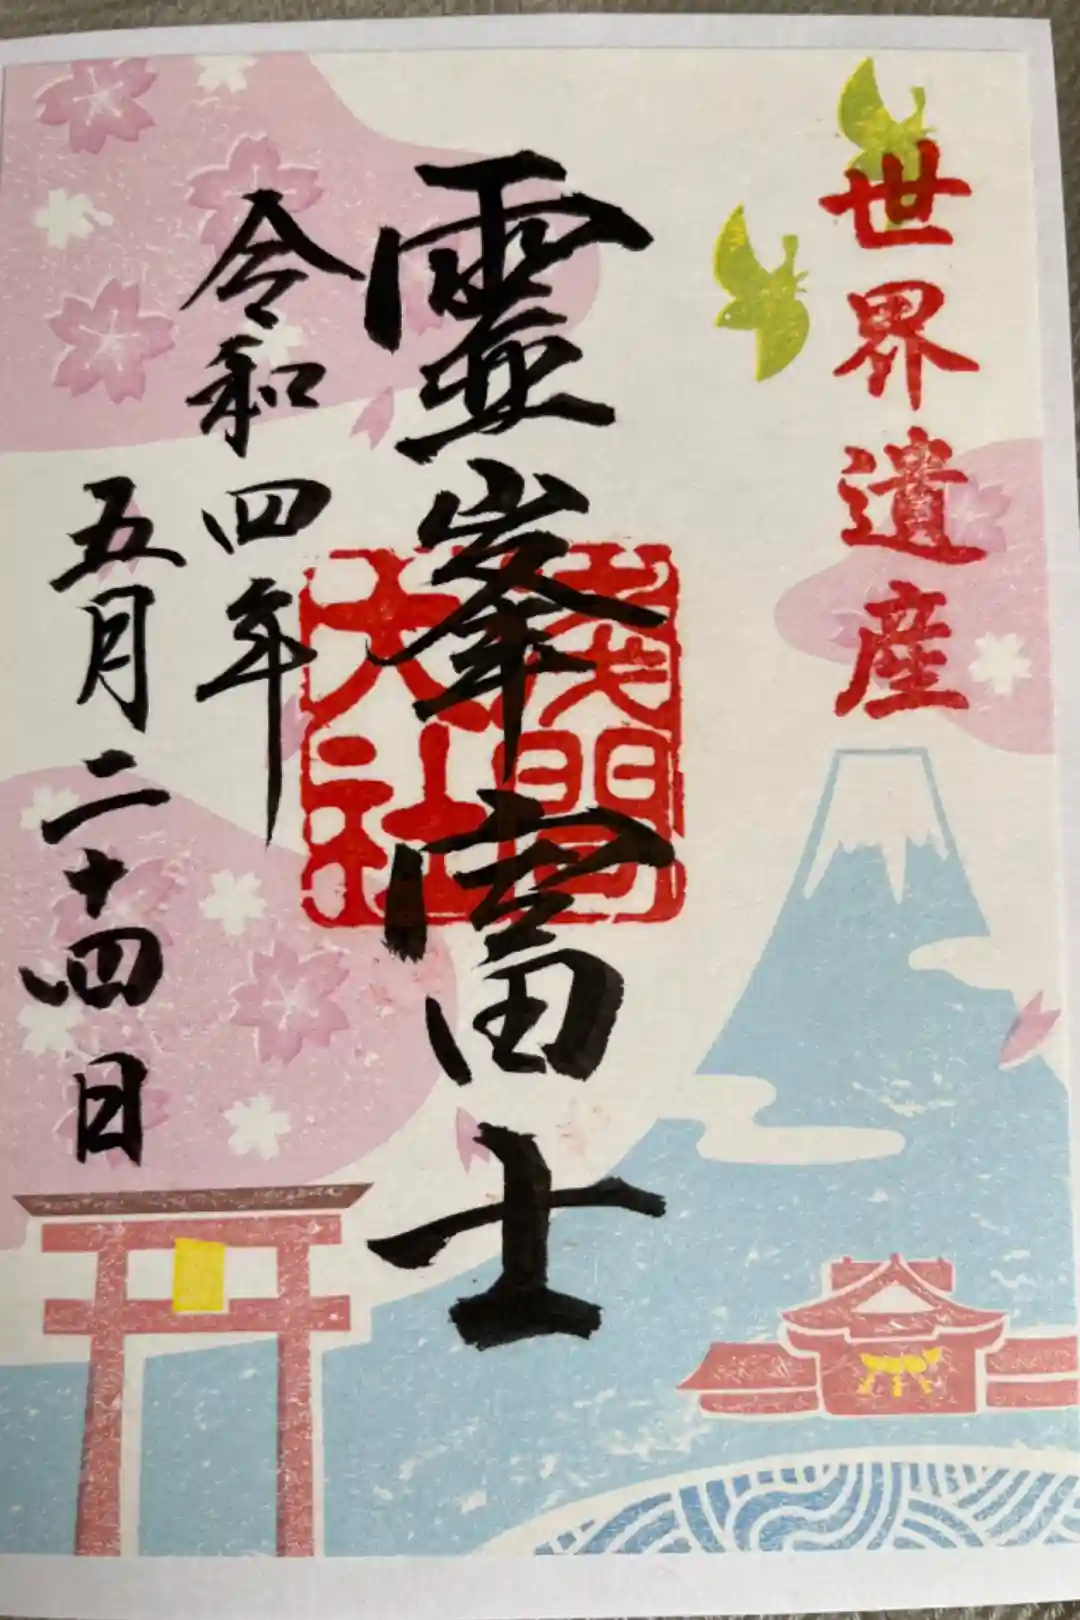 世界遺産
靈峯富士
浅間大社
令和四年
五月二十四日